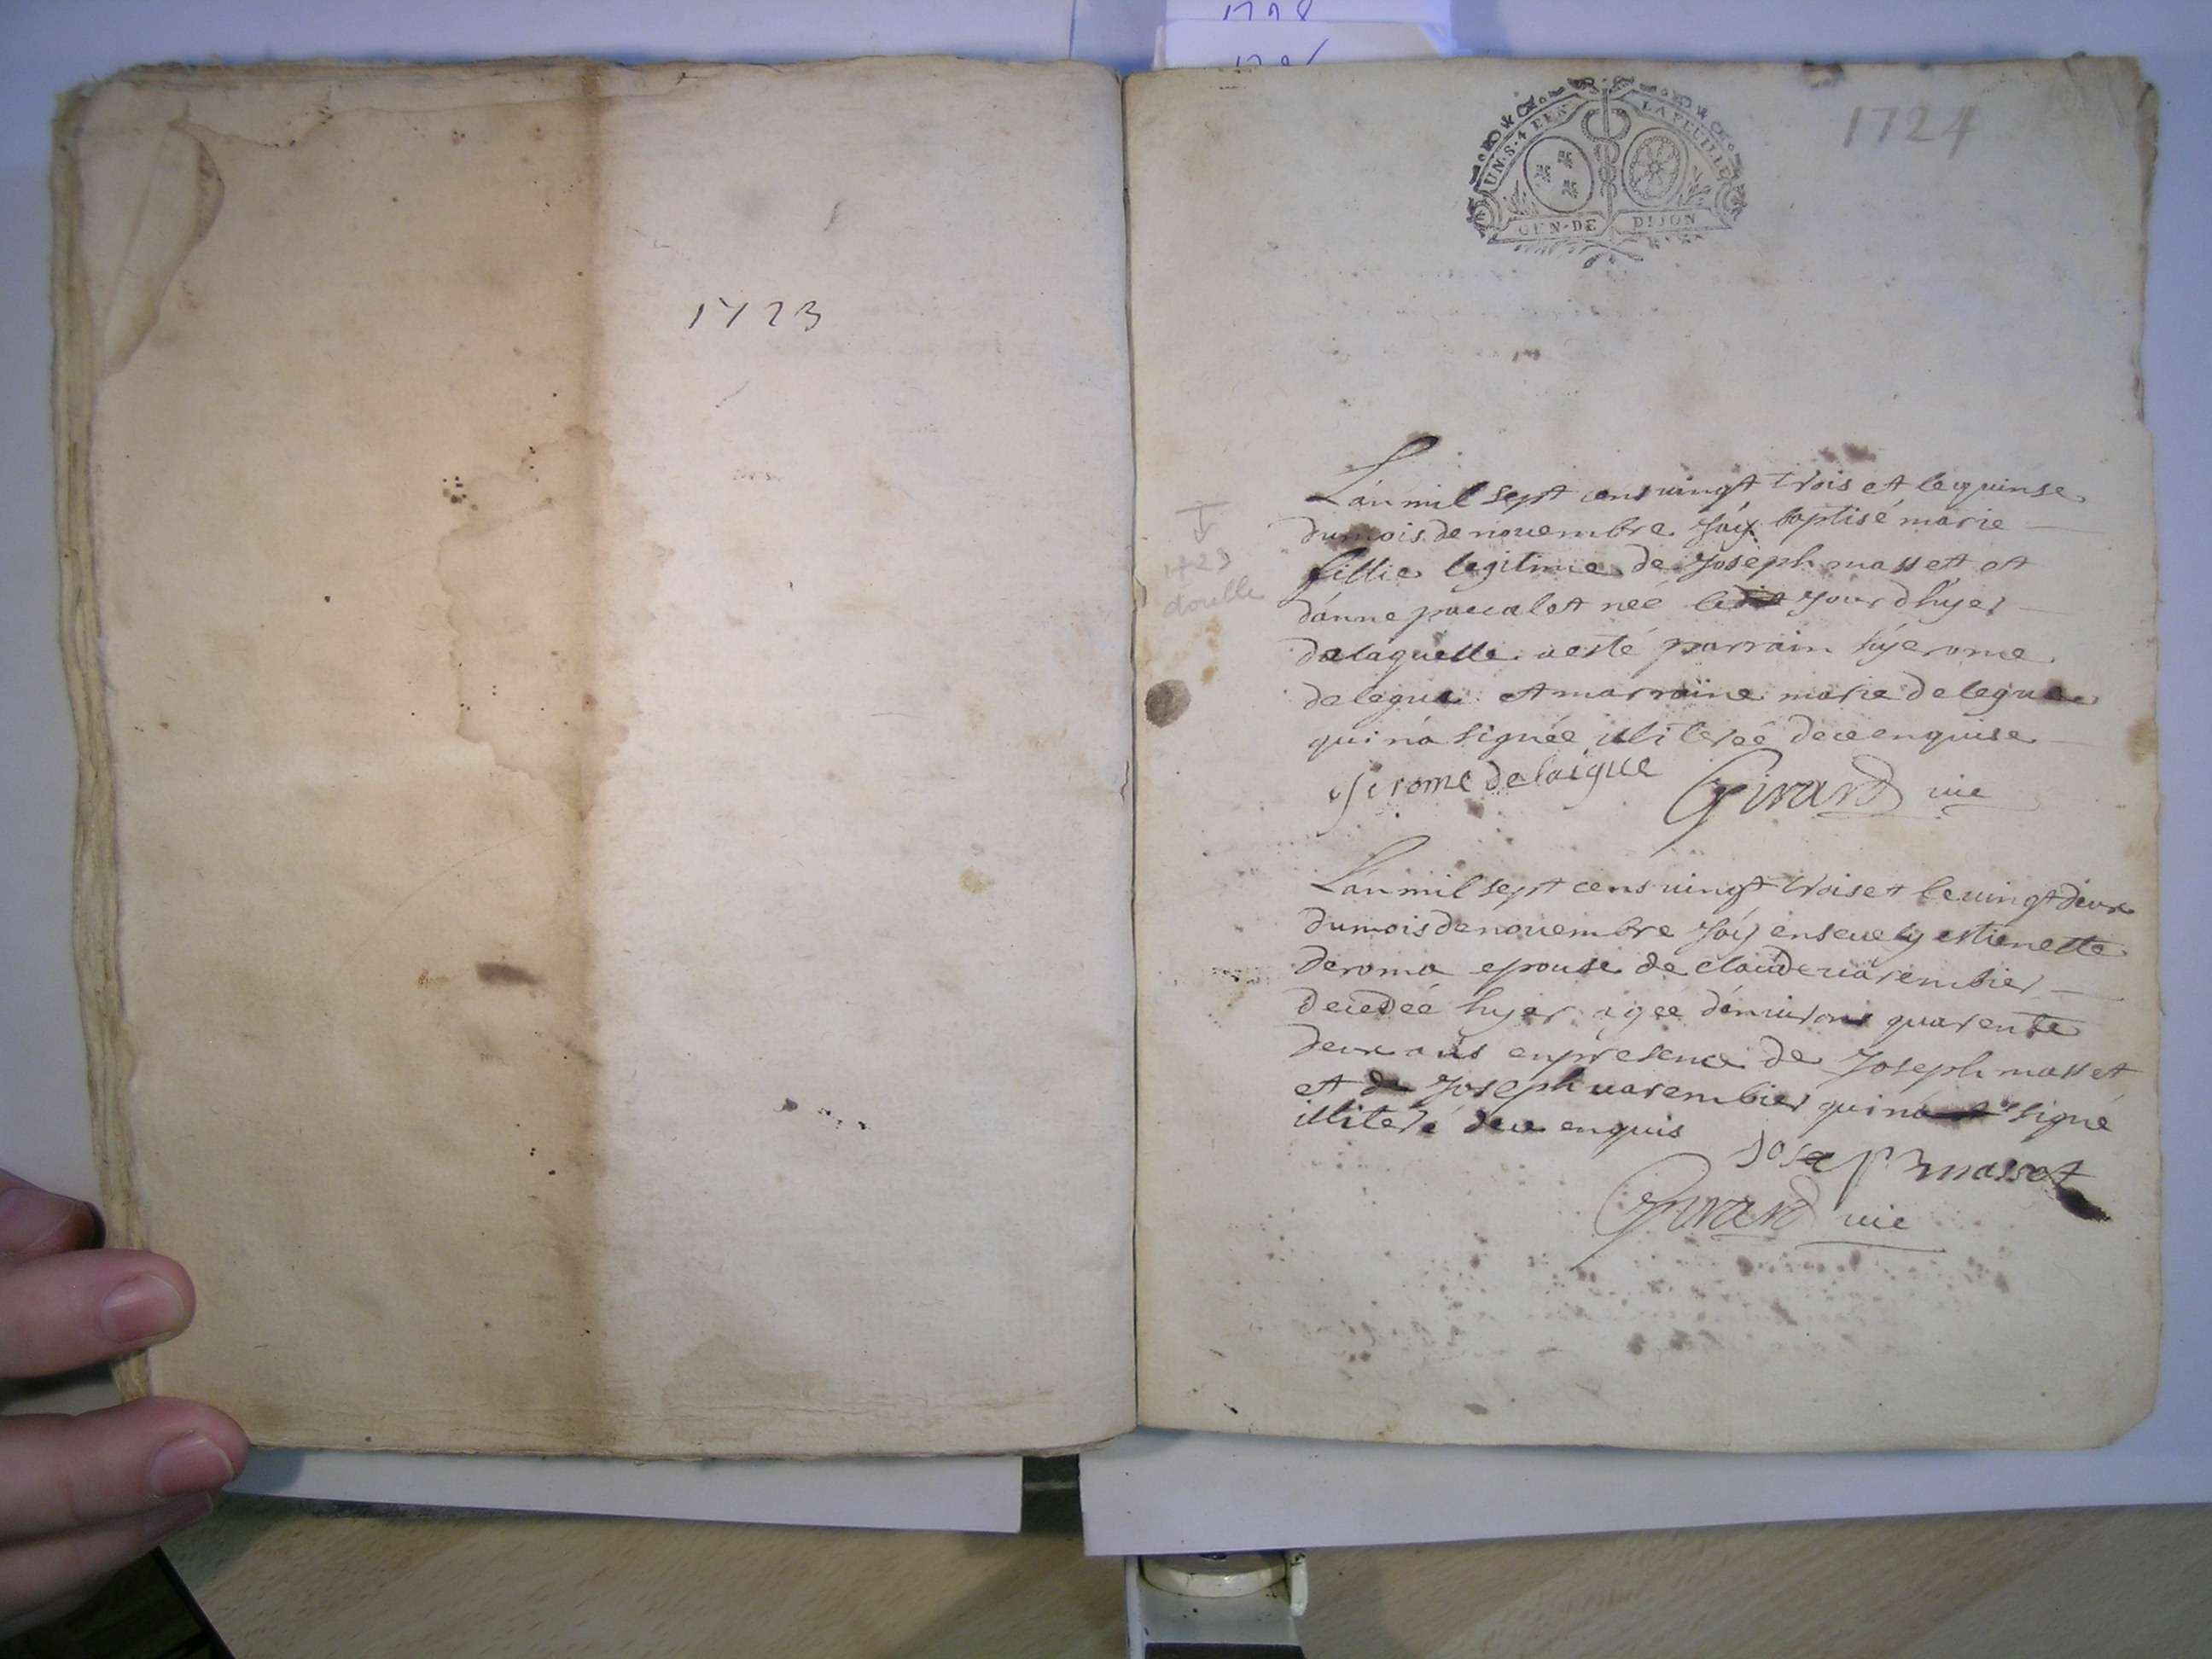 1723
UN·S·4 DEN LA FEUILLE
GEN·DE DIJON
1724
1723
double
L'an mil sept cens vingt trois et le quinse
du mois de novembre j'ay baptisé marie
fillie legitime de Joseph massett et
d'anne paucalot neé jour d'hyer
de laquelle a esté parrain hyerome
delegue et marraine marie delegue
qui n'a signée illitereé de ce enquise
Jerome delaigue Girard vic
L'an mil sept cens vingt trois et le vingt deux
du mois de novembre j'ay ensevely estienette
deroma epouse de claude varembier
decedeé hyer agee d'environs quarente
deux ans en presence de Joseph masset
et de Joseph varembier qui n'a signé
illiteré de ce enquis
Joseph masset
Girard vic